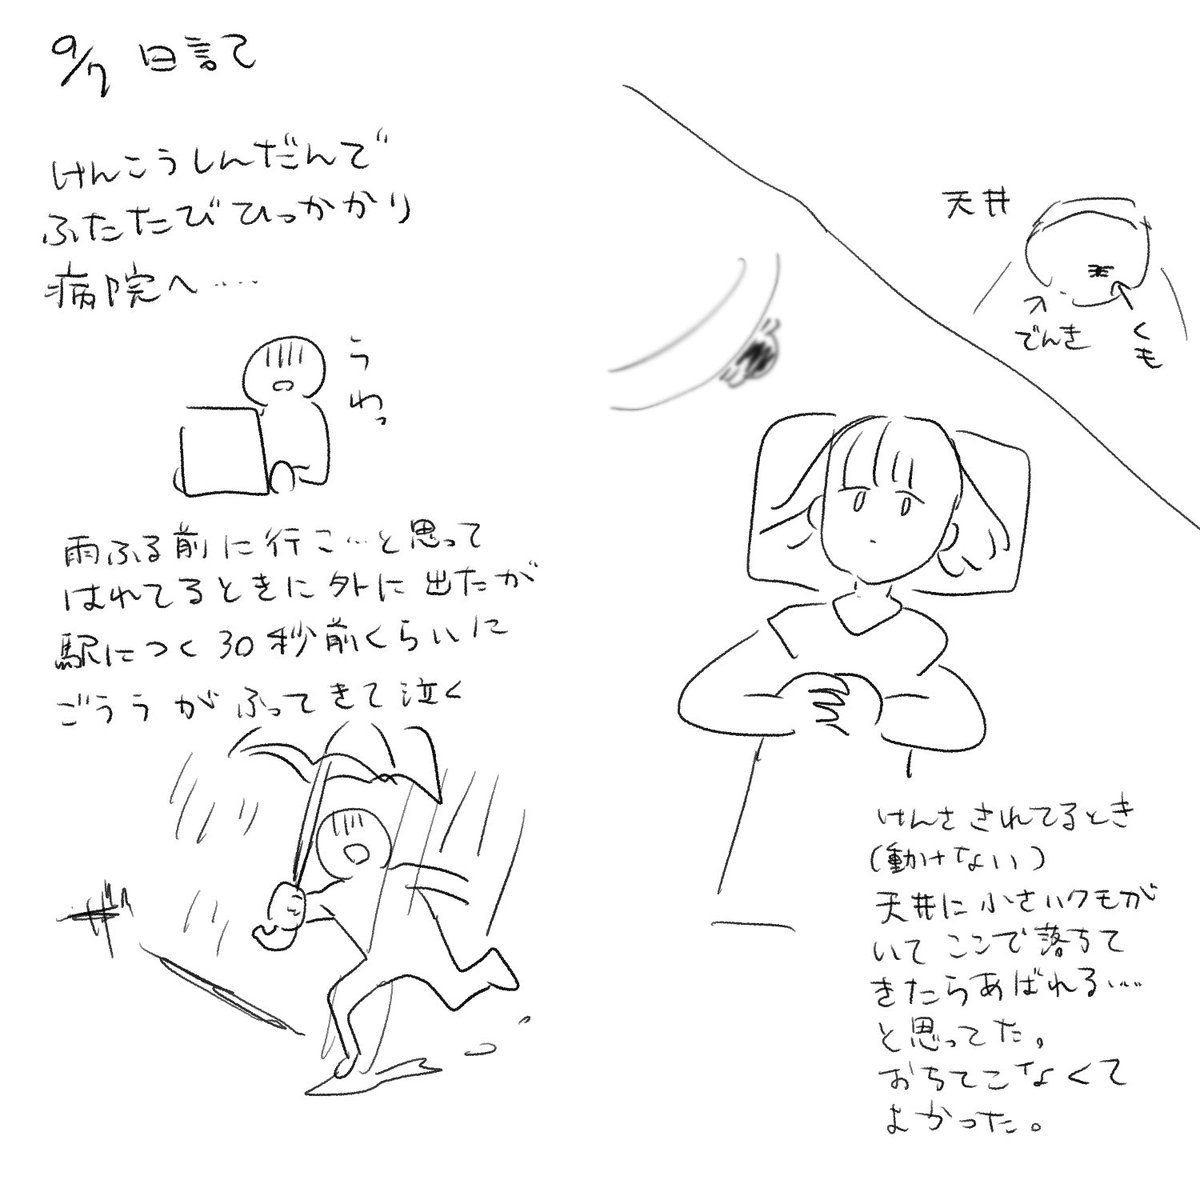 9/7 日記
けんこうしんだんで
ふたたびひっかかり
病院へ……
うわっ
雨ふる前に行こ…と思って
はれてるときに外に出たが
駅につく30秒前くらいに
ごううがふってきて泣く
ザー
天井
でんき
くも
けんさされてるとき
(動けない)
天井に小さいクモが
いてここで落ちて
きたらあばれる……
と思ってた。
おちてこなくて
よかった。